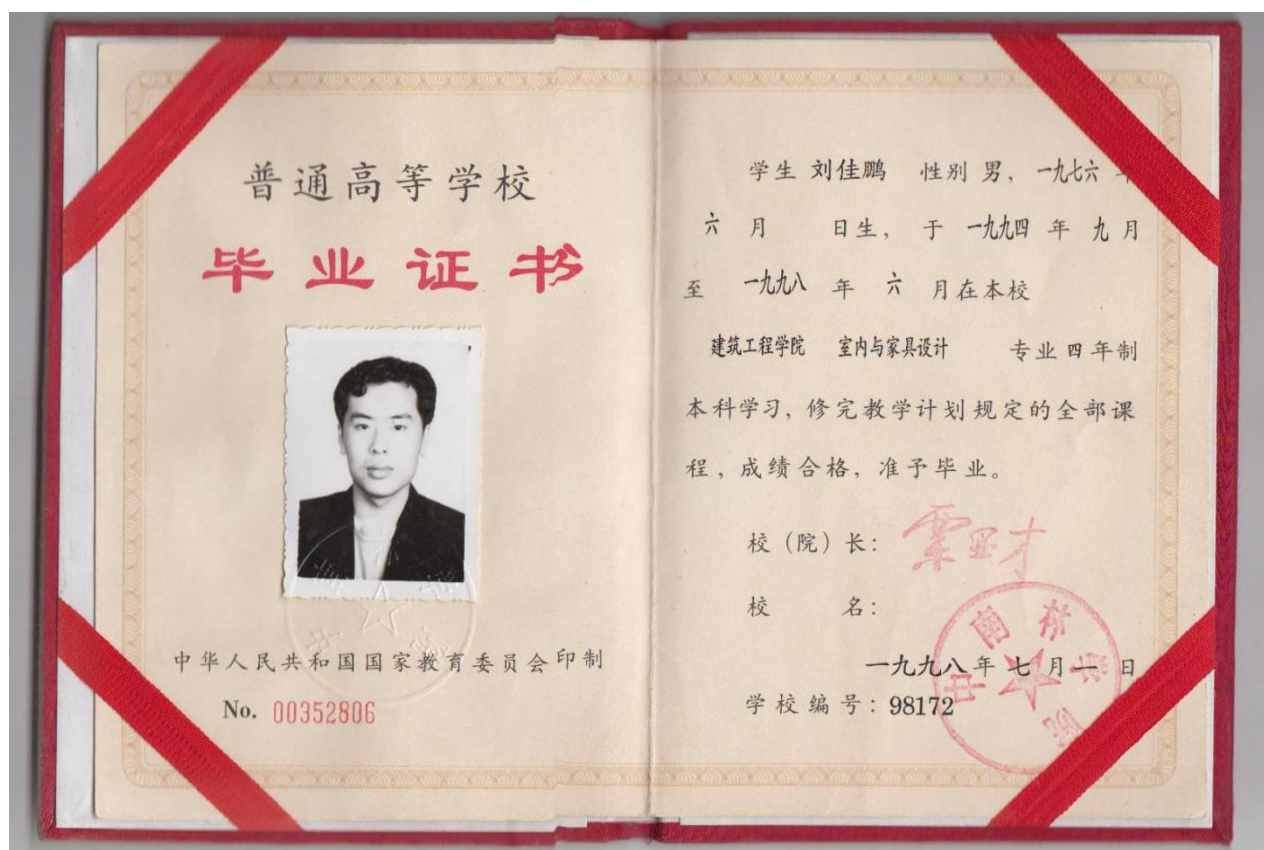 普通高等学校
毕业证书
中华人民共和国国家教育委员会印制
No. 00352806
学生 刘佳鹏 性别 男, 一九七六 年
六 月 日生, 于 一九九四 年 九 月
至 一九九八 年 六 月在本校
建筑工程学院 室内与家具设计 专业 四 年制
本科学习, 修完教学计划规定的全部课
程, 成绩合格, 准予毕业。
校(院)长:
校 名:
中南林学院
一九九八年 七 月 一 日
学校编号: 98172